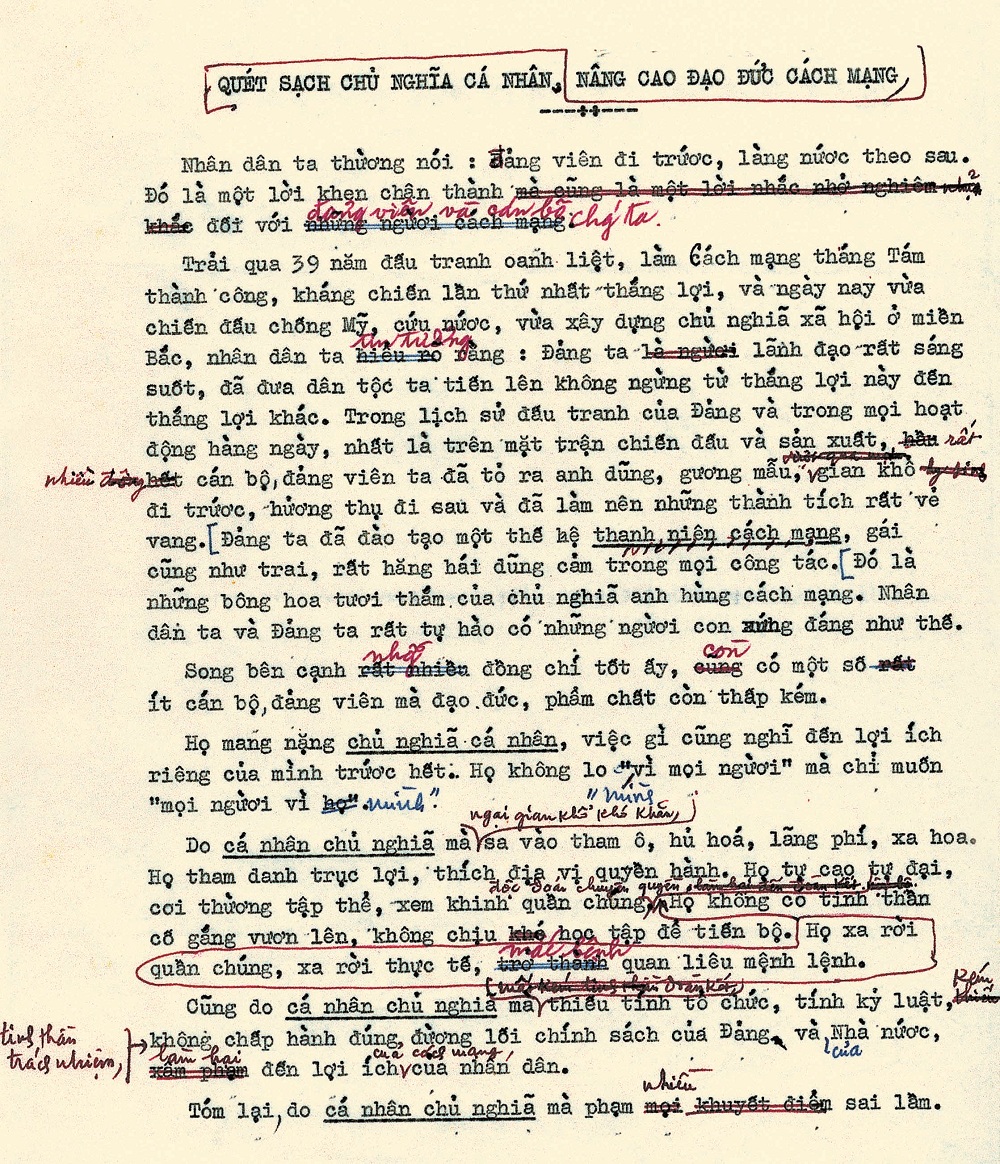 QUÉT SẠCH CHỦ NGHĨA CÁ NHÂN, NÂNG CAO ĐẠO ĐỨC CÁCH MẠNG,
Nhân dân ta thường nói : Đảng viên đi trước, làng nước theo sau.
Đó là một lời khen chân thành mà cũng là một lời nhắc nhở nghiêm
đảng viên và cán bộ chú ta.
khắc đối với những người cách mạng.
Trải qua 39 năm đấu tranh oanh liệt, làm Cách mạng tháng Tám
thành công, kháng chiến lần thứ nhất thắng lợi, và ngày nay vừa
chiến đấu chống Mỹ, cứu nước, vừa xây dựng chủ nghiã xã hội ở miền
tin tưởng
Bắc, nhân dân ta hiểu rõ rằng : Đảng ta là người lãnh đạo rất sáng
suốt, đã đưa dân tộc ta tiến lên không ngừng từ thắng lợi này đến
thắng lợi khác. Trong lịch sử đấu tranh của Đảng và trong mọi hoạt
động hàng ngày, nhất là trên mặt trận chiến đấu và sản xuất, hầu rất
nhiều hết cán bộ, đảng viên ta đã tỏ ra anh dũng, gương mẫu, gian khổ
đi trước, hưởng thụ đi sau và đã làm nên những thành tích rất vẻ
vang. [Đảng ta đã đào tạo một thế hệ thanh niên cách mạng, gái
cũng như trai, rất hăng hái dũng cảm trong mọi công tác. [Đó là
những bông hoa tươi thắm của chủ nghiã anh hùng cách mạng. Nhân
dân ta và Đảng ta rất tự hào có những người con xứng đáng như thế.
những còn
Song bên cạnh rất nhiều đồng chí tốt ấy, cũng có một số rất
ít cán bộ, đảng viên mà đạo đức, phẩm chất còn thấp kém.
Họ mang nặng chủ nghiã cá nhân, việc gì cũng nghĩ đến lợi ích
riêng của mình trước hết. Họ không lo "vì mọi người" mà chỉ muốn
"mọi người vì họ". mình". "mình
ngại gian khổ khó khăn,
Do cá nhân chủ nghiã mà sa vào tham ô, hủ hoá, lãng phí, xa hoa.
Họ tham danh trục lợi, thích địa vị quyền hành. Họ tự cao tự đại,
độc đoán chuyên quyền,
coi thường tập thể, xem khinh quần chúng. Họ không có tinh thần
cố gắng vươn lên, không chịu khó học tập để tiến bộ. Họ xa rời
mắc bệnh
quần chúng, xa rời thực tế, trở thành quan liêu mệnh lệnh.
mất đoàn kết,
Cũng do cá nhân chủ nghiã mà thiếu tính tổ chức, tính kỷ luật, kém
tinh thần trách nhiệm, không chấp hành đúng đường lối chính sách của Đảng, và của Nhà nước,
làm hại của cách mạng,
xâm phạm đến lợi ích của nhân dân.
nhiều
Tóm lại, do cá nhân chủ nghiã mà phạm mọi khuyết điểm sai lầm.